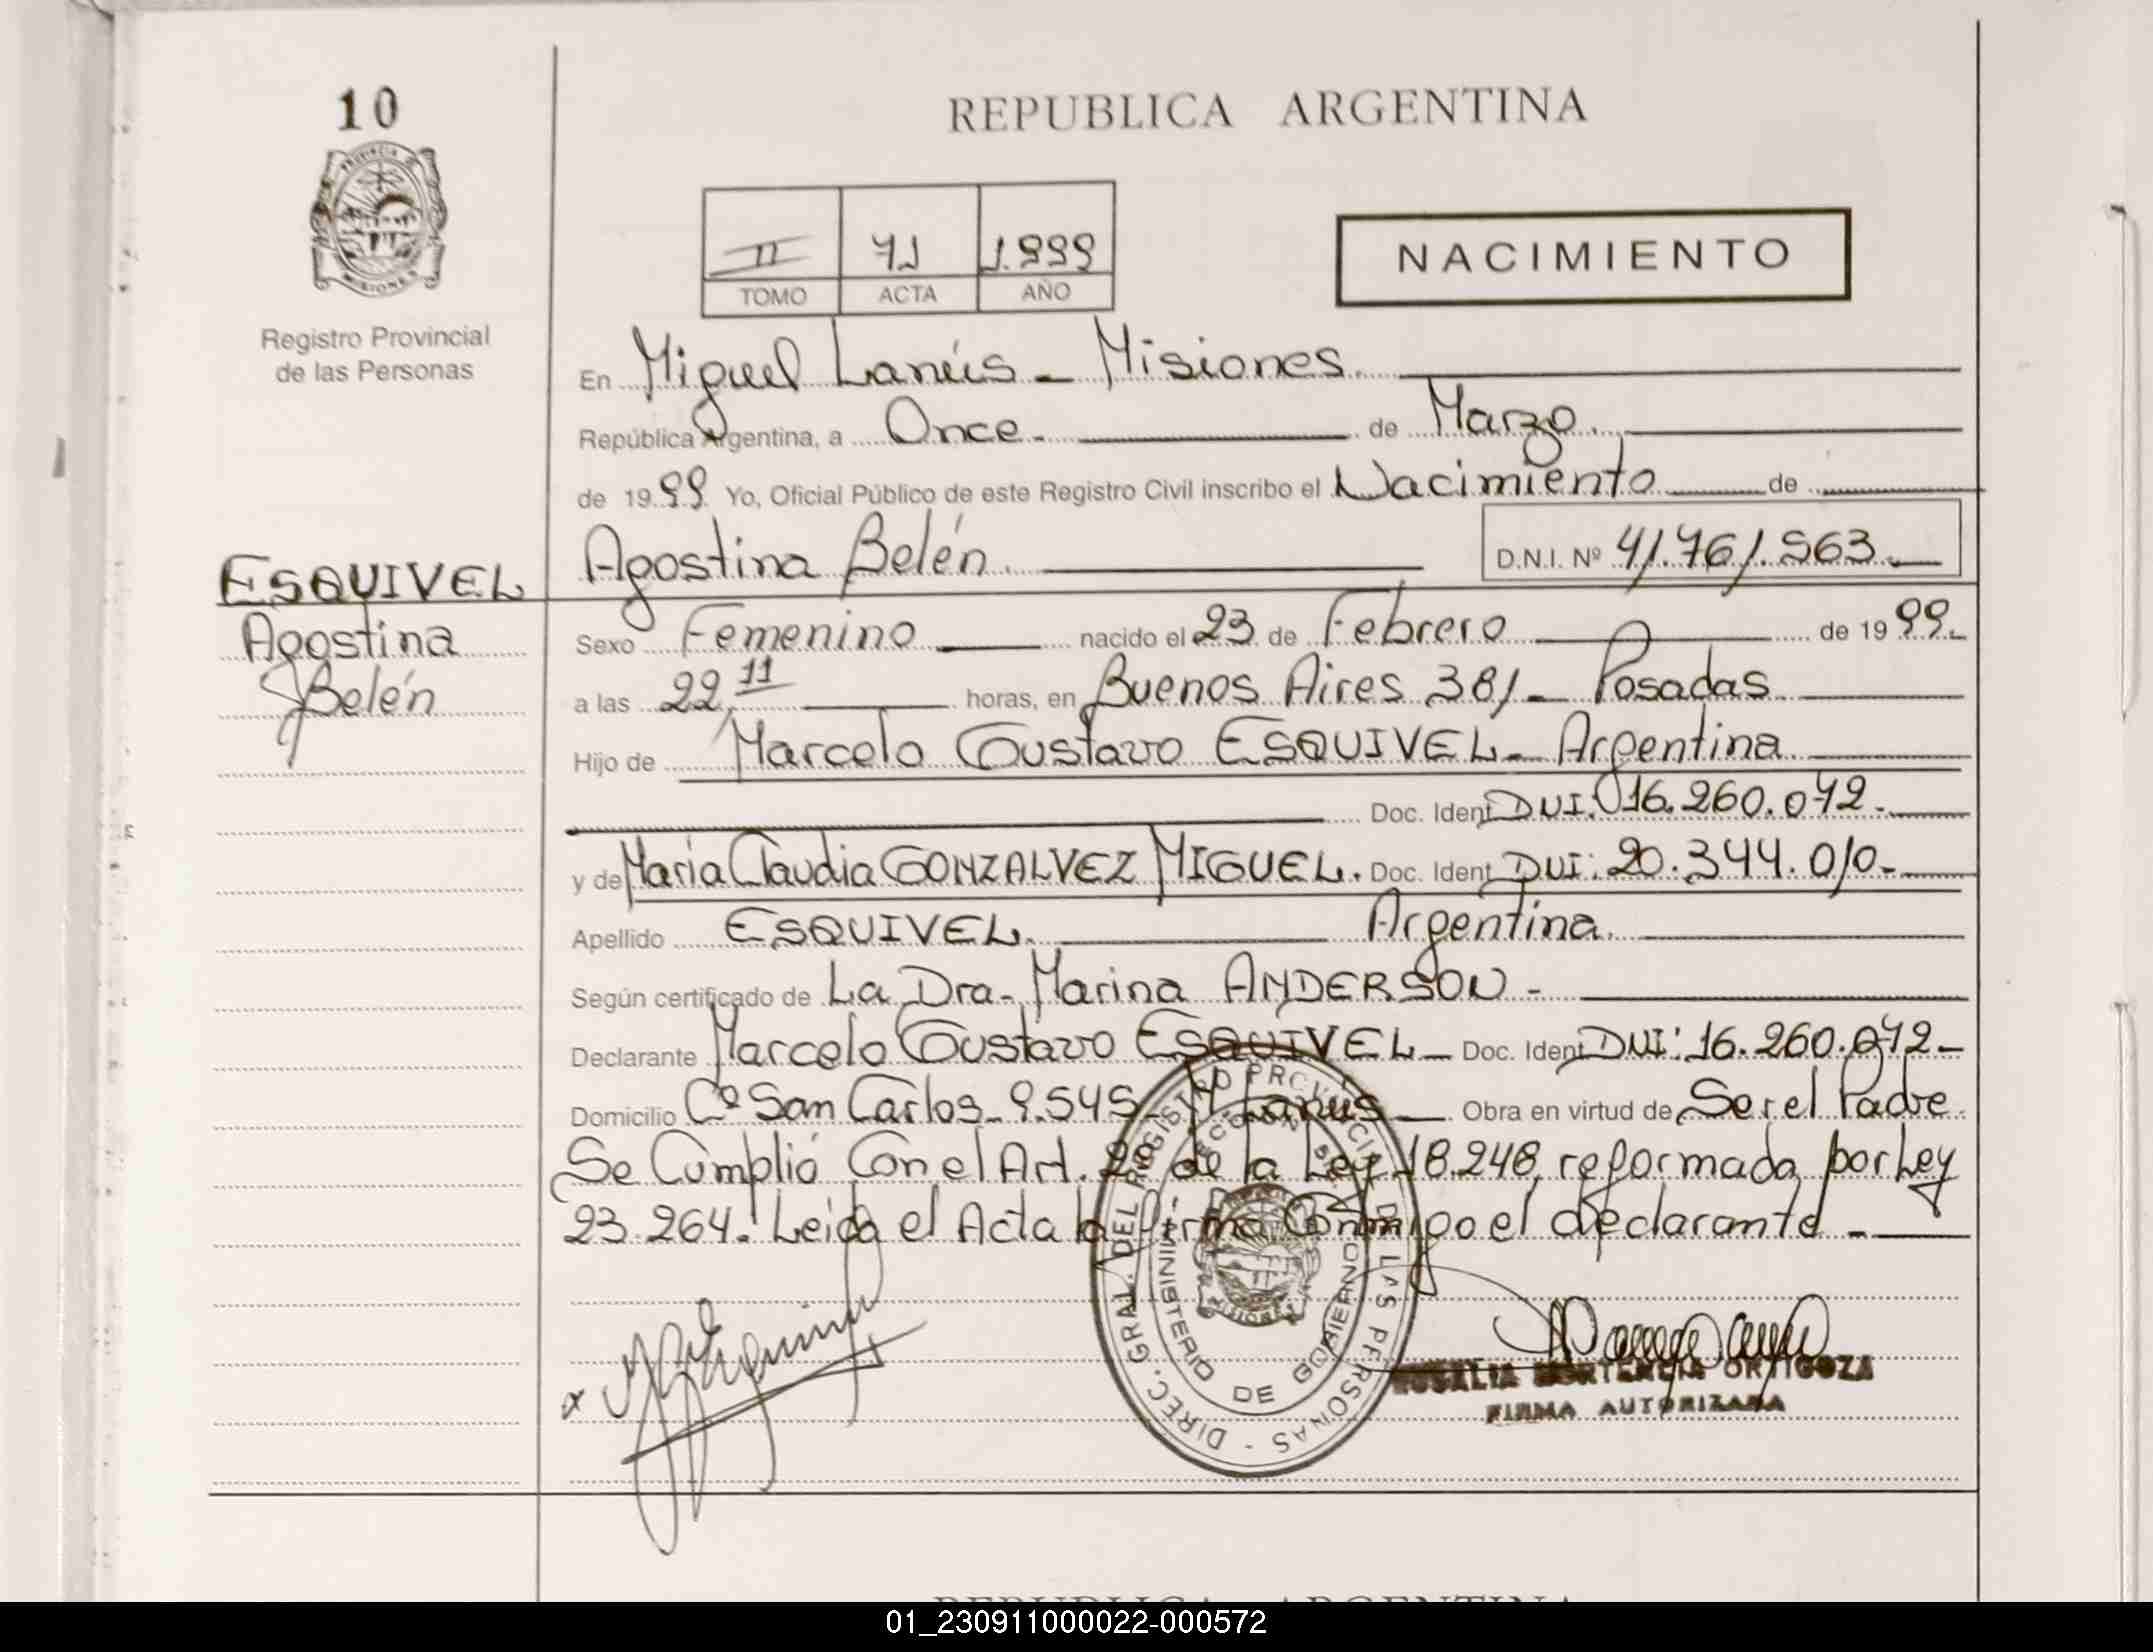 10
REPUBLICA ARGENTINA
PROVINCIA DE MISIONES
II 71 1.999
TOMO ACTA AÑO
NACIMIENTO
Registro Provincial
de las Personas
En Miguel Lanús - Misiones.
República Argentina, a Once. de Marzo.
de 1999 Yo, Oficial Público de este Registro Civil inscribo el Nacimiento de
ESQUIVEL
Agostina
Belén
Agostina Belén. D.N.I. Nº 41.761.563.
Sexo Femenino nacido el 23 de Febrero de 1999.
a las 22,11 horas, en Buenos Aires 381 - Posadas
Hijo de Marcelo Gustavo ESQUIVEL - Argentina
Doc. Ident DNI: 16.260.072.
y de María Claudia GONZALVEZ MIGUEL. Doc. Ident DNI: 20.344.010-
Apellido ESQUIVEL. Argentina.
Según certificado de La Dra. Marina ANDERSON -
Declarante Marcelo Gustavo ESQUIVEL - Doc. Ident DNI: 16.260.072 -
Domicilio Cº San Carlos - 9.545 - M. Lanús Obra en virtud de Ser el Padre
Se Cumplió Con el Art. de la Ley 18.248, reformada por Ley
23.264. Leida el Acta la firma Conmigo el declarante -
DIREC. GRAL. DEL REGISTRO PROVINCIAL DE LAS PERSONAS -
MINISTERIO DE GOBIERNO
ROSALIA HORTENCIA ORTIGOZA
FIRMA AUTORIZADA
REPUBLICA ARGENTINA
01_230911000022-000572